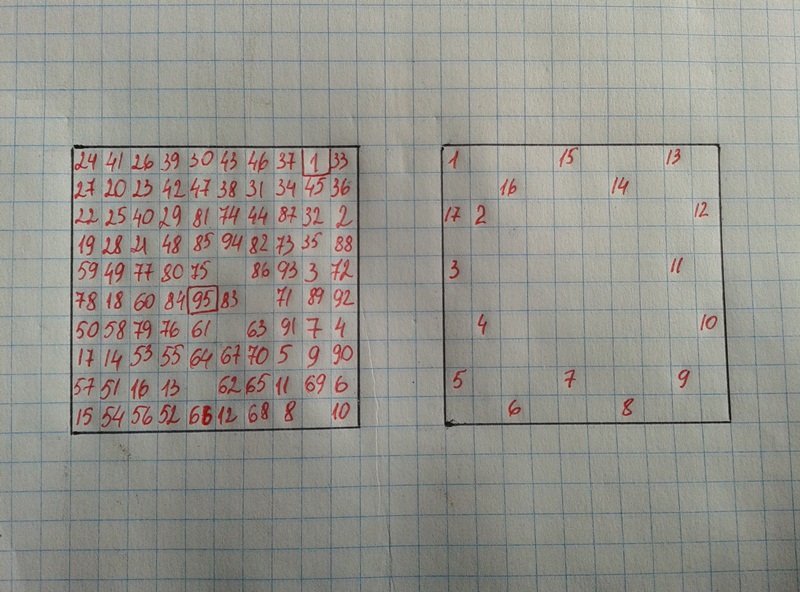 24 41 26 39 30 43 46 37 1 33
27 20 23 42 47 38 31 34 45 36
22 25 40 29 81 74 44 87 32 2
19 28 21 48 85 94 82 73 35 88
59 49 77 80 75 86 93 3 72
78 18 60 84 95 83 71 89 92
50 58 79 76 61 63 91 7 4
17 14 53 55 64 67 70 5 9 90
57 51 16 13 62 65 11 69 6
15 54 56 52 66 12 68 8 10
1 15 13
16 14
17 2 12
3 11
4 10
5 7 9
6 8